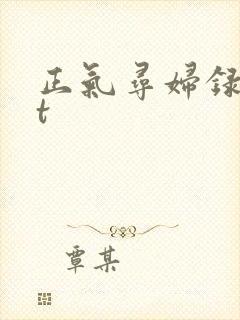 正氣尋婦録
t
覃某